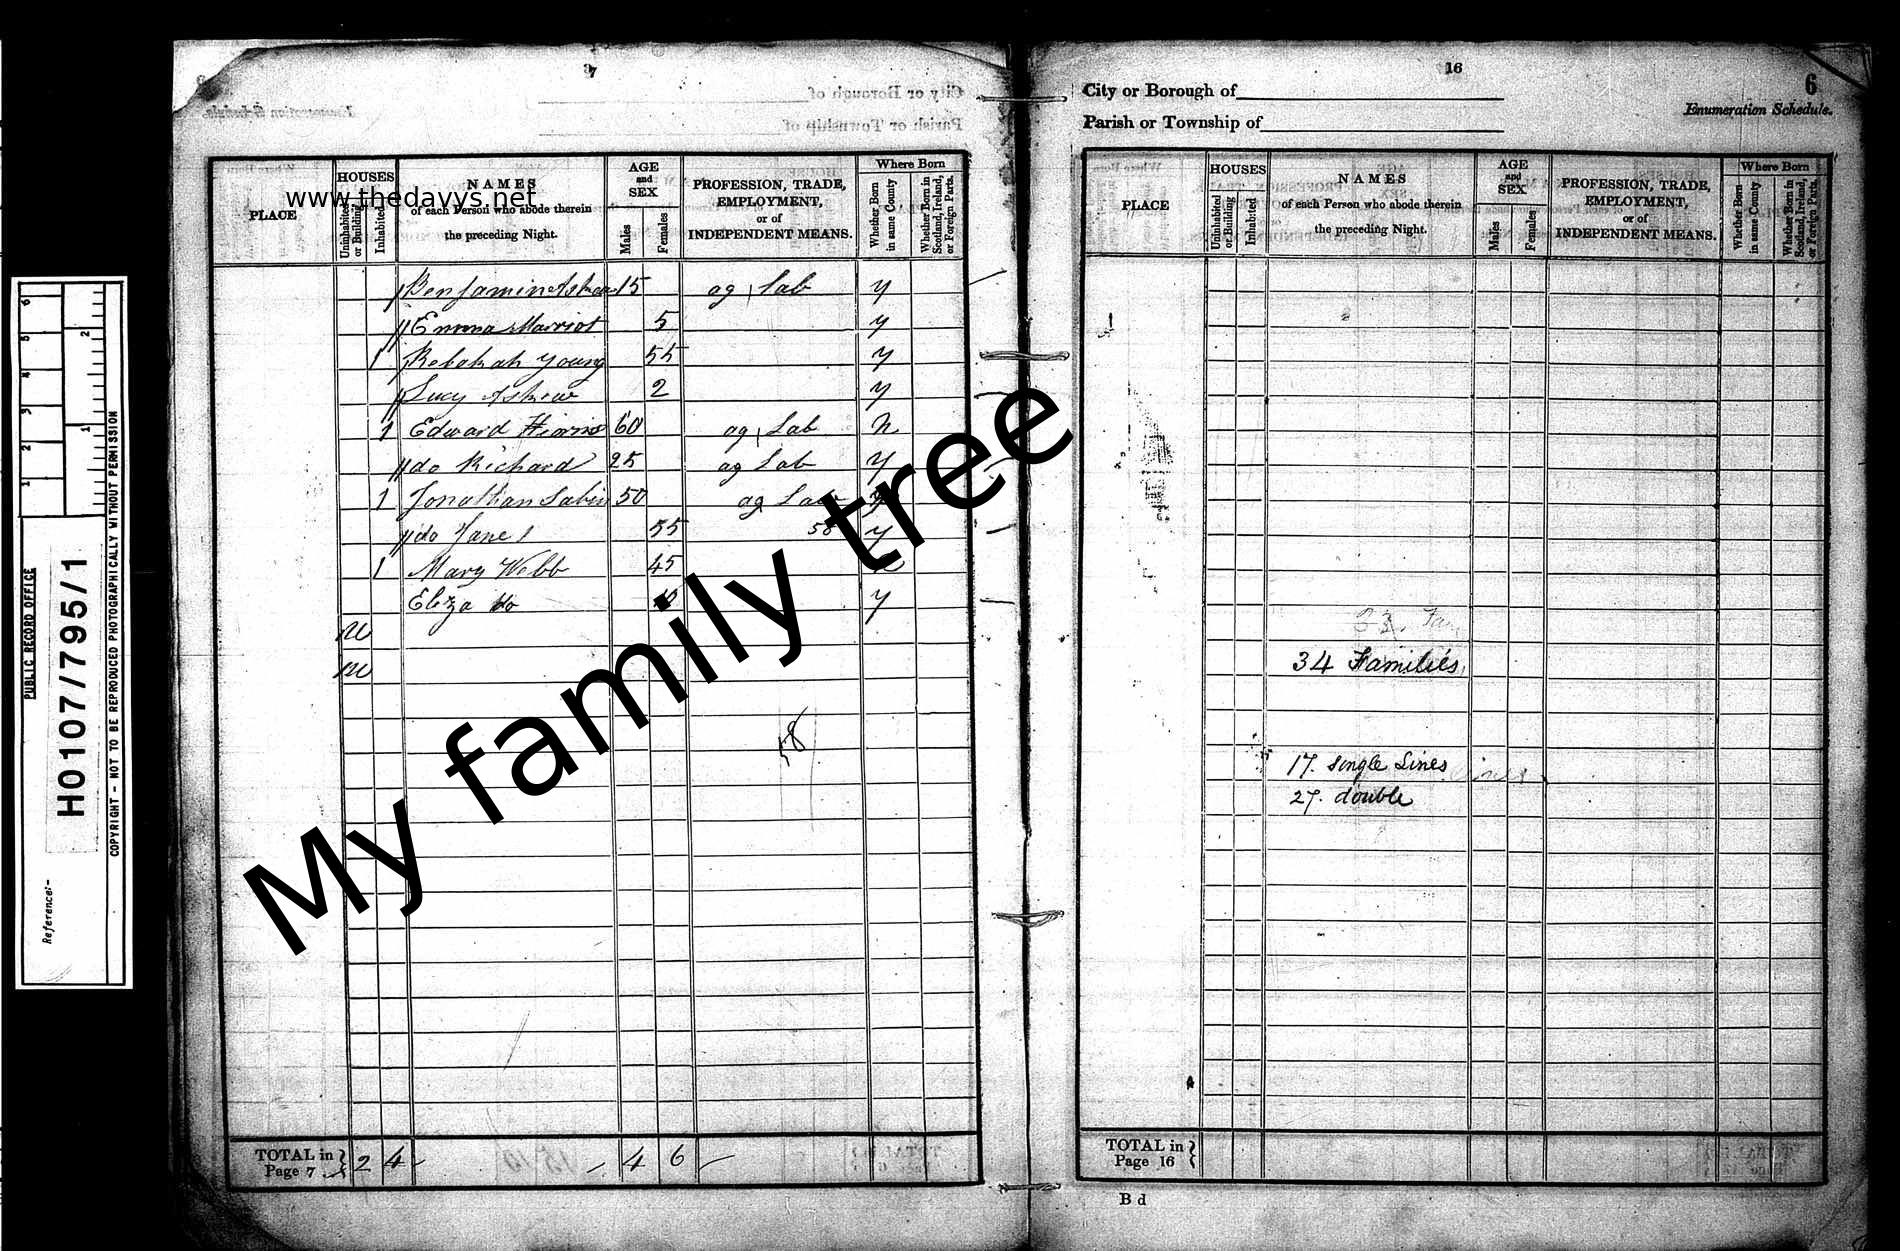 7
City or Borough of
Parish or Township of
Enumeration Schedule.
PLACE
HOUSES
Uninhabited or Building
Inhabited
NAMES
of each Person who abode therein
the preceding Night.
AGE and SEX
Males
Females
PROFESSION, TRADE,
EMPLOYMENT,
or of
INDEPENDENT MEANS.
Where Born
Whether Born in same County
Whether Born in Scotland, Ireland, or Foreign Parts.
www.thedavys.net
Benjamin Askew 15 ag Lab y
Emma Marriot 5 y
1 Rebekah Young 55 y
Lucy Askew 2 y
1 Edward 60 ag Lab n
do Richard 25 ag Lab y
1 Jonathan Sabin 50 ag Lab y
do Jane 55 58 y
1 Mary Webb 45
Eliza do y
58
My family tree
TOTAL in Page 7 2 4 4 6
16
6
City or Borough of
Parish or Township of
Enumeration Schedule.
PLACE
HOUSES
Uninhabited or Building
Inhabited
NAMES
of each Person who abode therein
the preceding Night.
AGE and SEX
Males
Females
PROFESSION, TRADE,
EMPLOYMENT,
or of
INDEPENDENT MEANS.
Where Born
Whether Born in same County
Whether Born in Scotland, Ireland, or Foreign Parts.
34 Families
17. single Lines
27. double
TOTAL in Page 16
B d
PUBLIC RECORD OFFICE
Reference:-
HO107/795/1
COPYRIGHT - NOT TO BE REPRODUCED PHOTOGRAPHICALLY WITHOUT PERMISSION
1 2 3 4 5 6
1 2